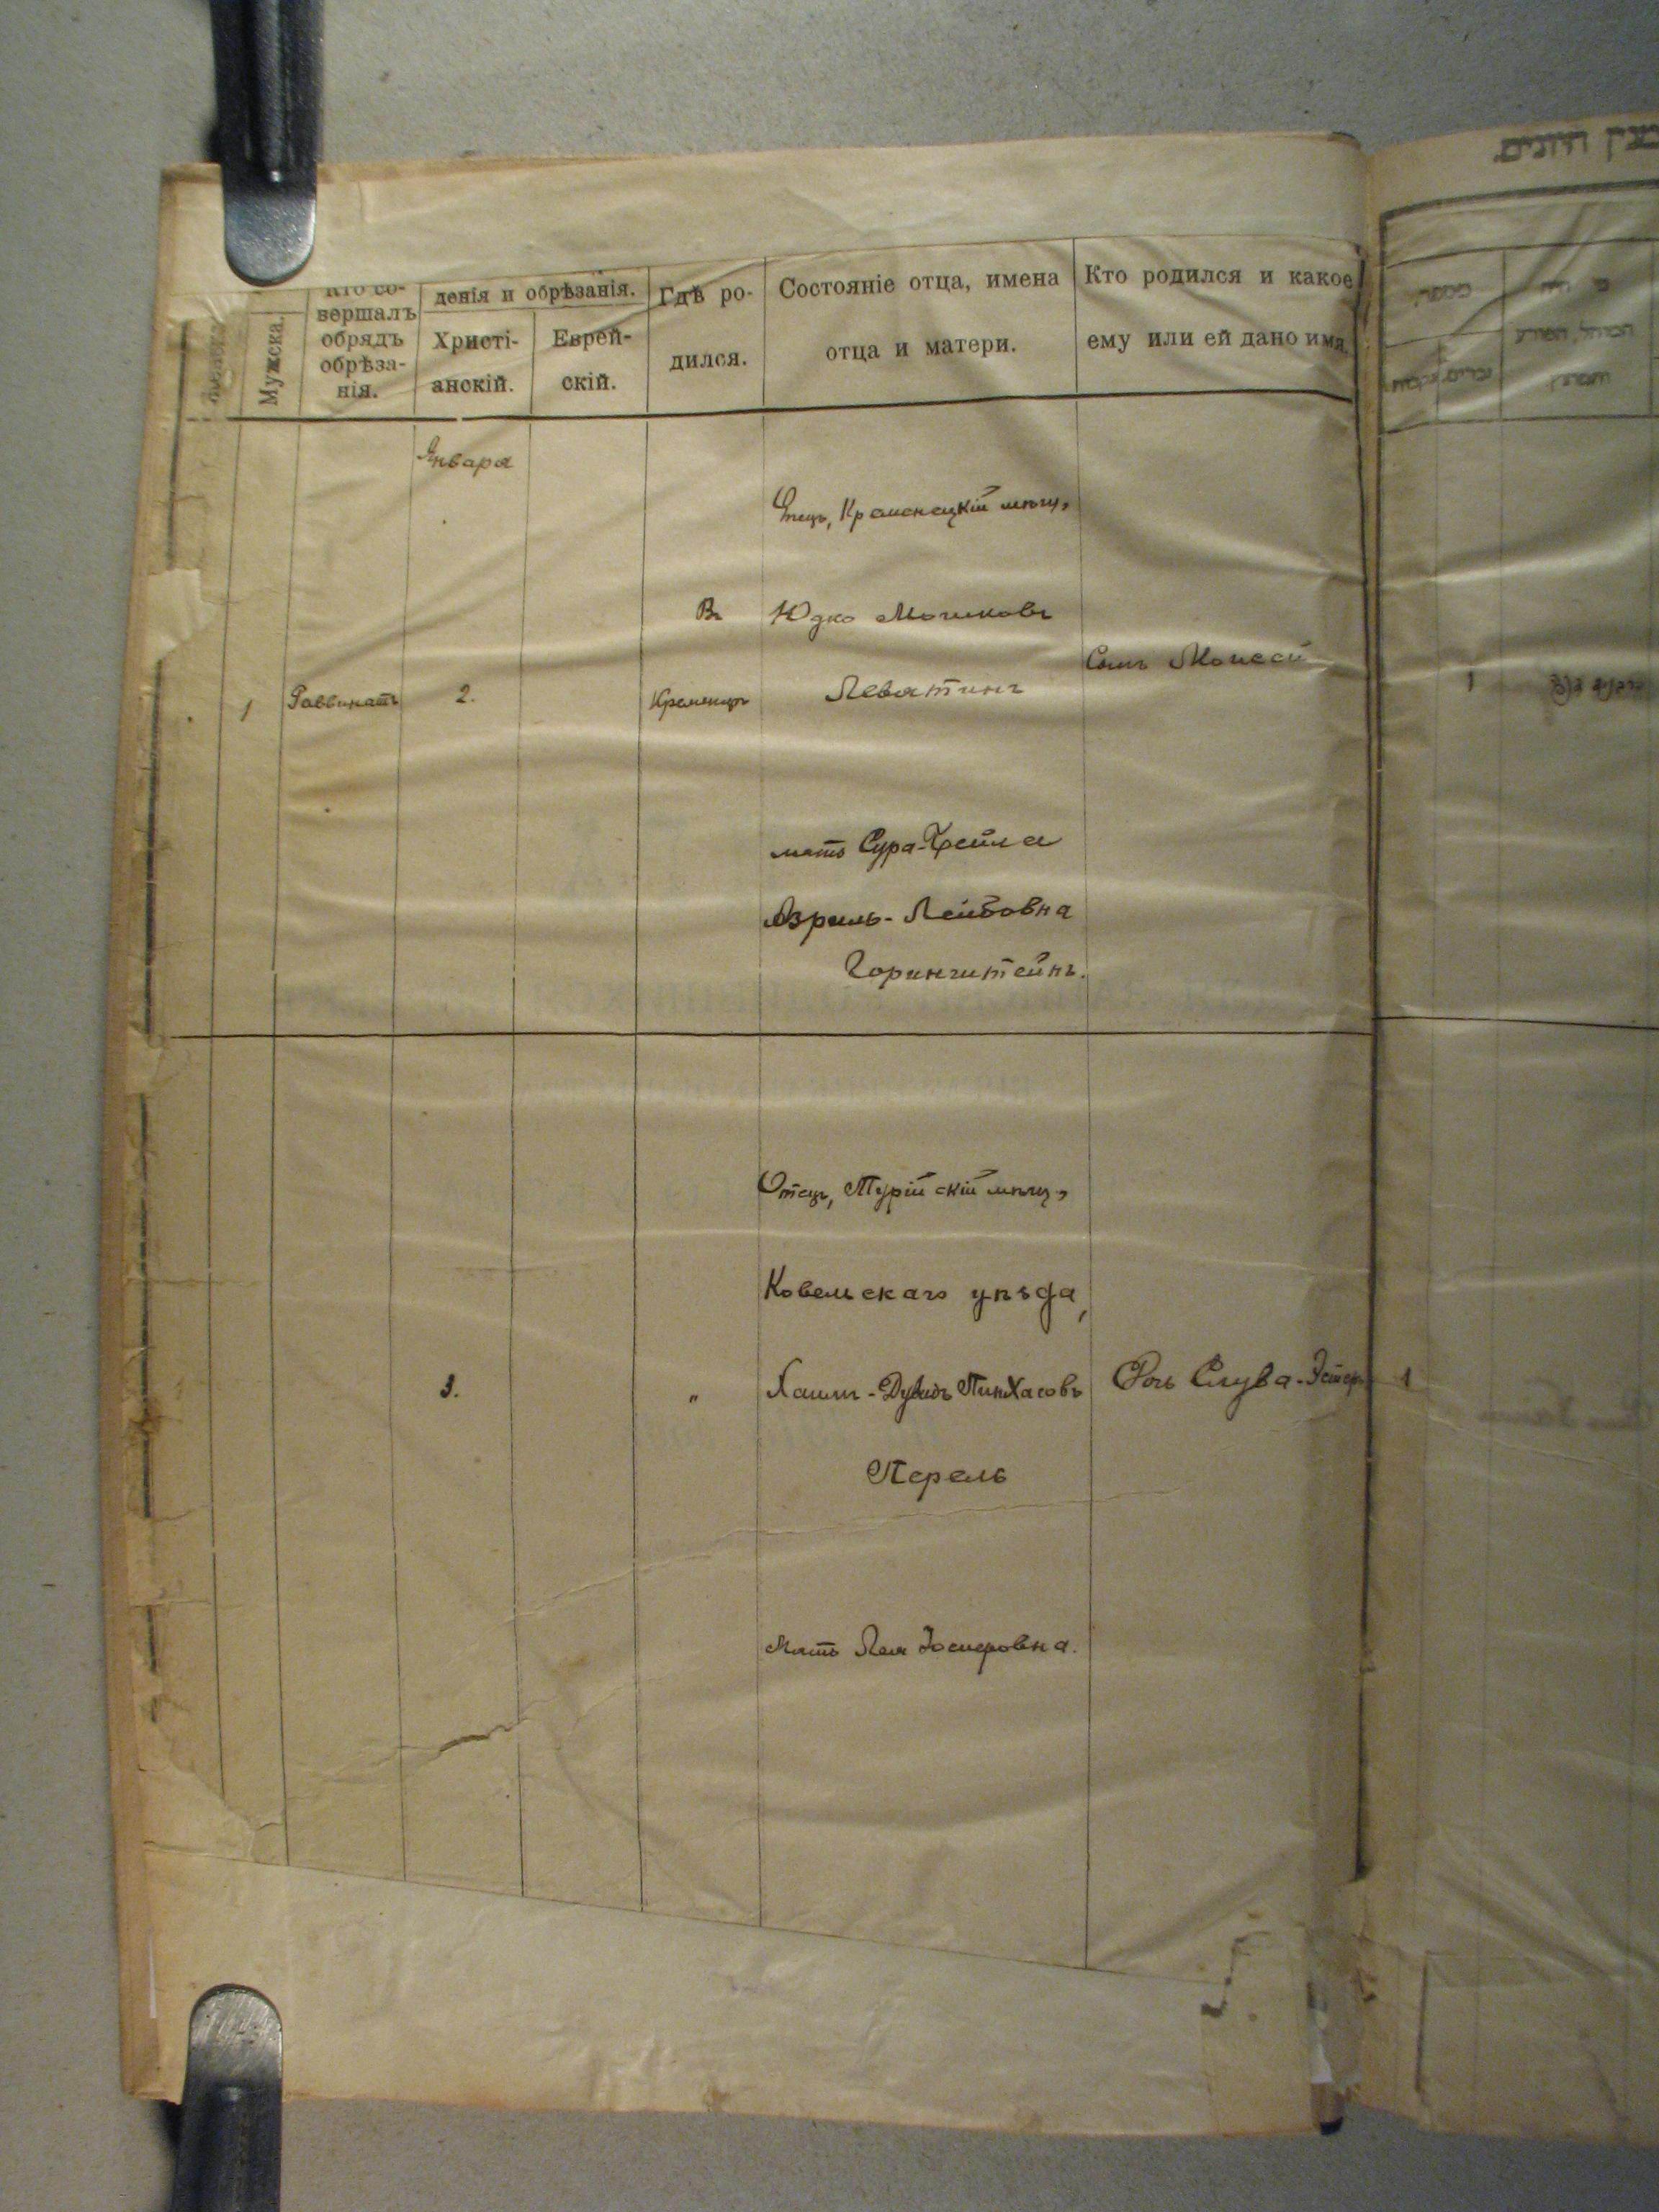 Мужска.
Кто со-
вершалъ
обрядъ
обрѣза-
нія.
денія и обрѣзанія.
Христі-
анскій.
Еврей-
скій.
Гдѣ ро-
дился.
Состояніе отца, имена
отца и матери.
Кто родился и какое
ему или ей дано имя.
Января
1
Раввинатъ
2.
Въ
Кременцѣ
Отецъ, Кременецкій мѣщ.
Юдко Мошковъ
Леватинъ
мать Сура-Хейла
Азриль-Лейбовна
Горинштейнъ.
Сынъ Моисей
1
3.
"
Отецъ, Турійскій мѣщ.
Ковельскаго уѣзда,
Хаимъ-Дувидъ Пинхасовъ
Перель
Мать Лея Іосиеровна.
Дочь Слува-Эстеръ
1